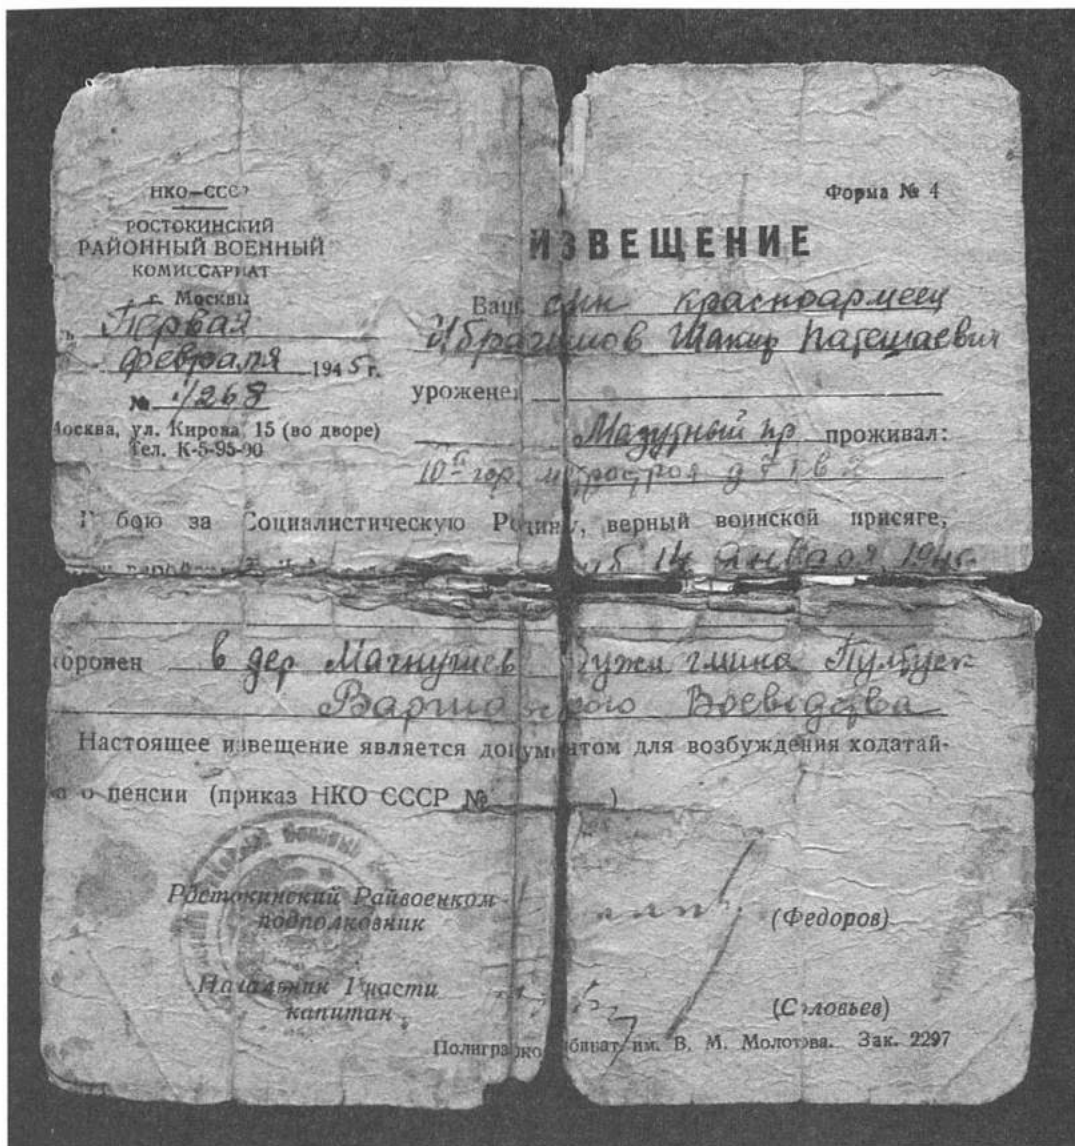 НКО—СССР
РОСТОКИНСКИЙ
РАЙОННЫЙ ВОЕННЫЙ
КОМИССАРИАТ
г. Москвы
Первая
февраля 1945 г.
№ 1/268
Москва, ул. Кирова, 15 (во дворе)
Тел. К-5-95-90
Форма № 4
ИЗВЕЩЕНИЕ
Ваш сын красноармеец
Ибрагимов Шакир
уроженец
Мазутный пр проживал:
10й гор. метростроя д 7
В бою за Социалистическую Родину, верный воинской присяге,
14 января 1945
в дер Магнушев гмина Пултуск
Варшавского Воеводства
Настоящее извещение является документом для возбуждения ходатай-
о пенсии (приказ НКО СССР № )
Ростокинский Райвоенком
подполковник
(Федоров)
Начальник 1 части
капитан
(Соловьев)
Полиграфкомбинат им. В. М. Молотова. Зак. 2297